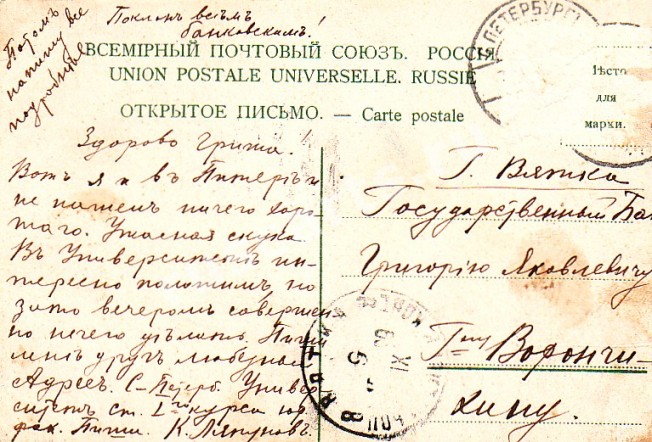 Поклонъ всѣмъ
банковскимъ!
Потомъ все
напишу
подробнѣе
ВСЕМІРНЫЙ ПОЧТОВЫЙ СОЮЗЪ. РОССІЯ
UNION POSTALE UNIVERSELLE. RUSSIE
ОТКРЫТОЕ ПИСЬМО. — Carte postale
ПЕТЕРБУРГ
Мѣсто
для
марки.
Здорово Гриша!
Вотъ я и въ Питерѣ и
не нашелъ ничего хоро-
шаго. Ужасная скука.
Въ Университетѣ ин-
тересно положимъ, но
зато вечеромъ совершен
но нечего дѣлать. Пиши
мнѣ другъ любезный
Адресъ. С-Петерб. Универ-
ситетъ ст. 1го курса юр.
фак. Пиши. К. Ляпуновъ.
Г. Вятка
Государственный Бан
Григорію Яковлевичу
Гну Ворончи-
хину.
ВЯТКА
ПОЧ
КОНТ
5
XI